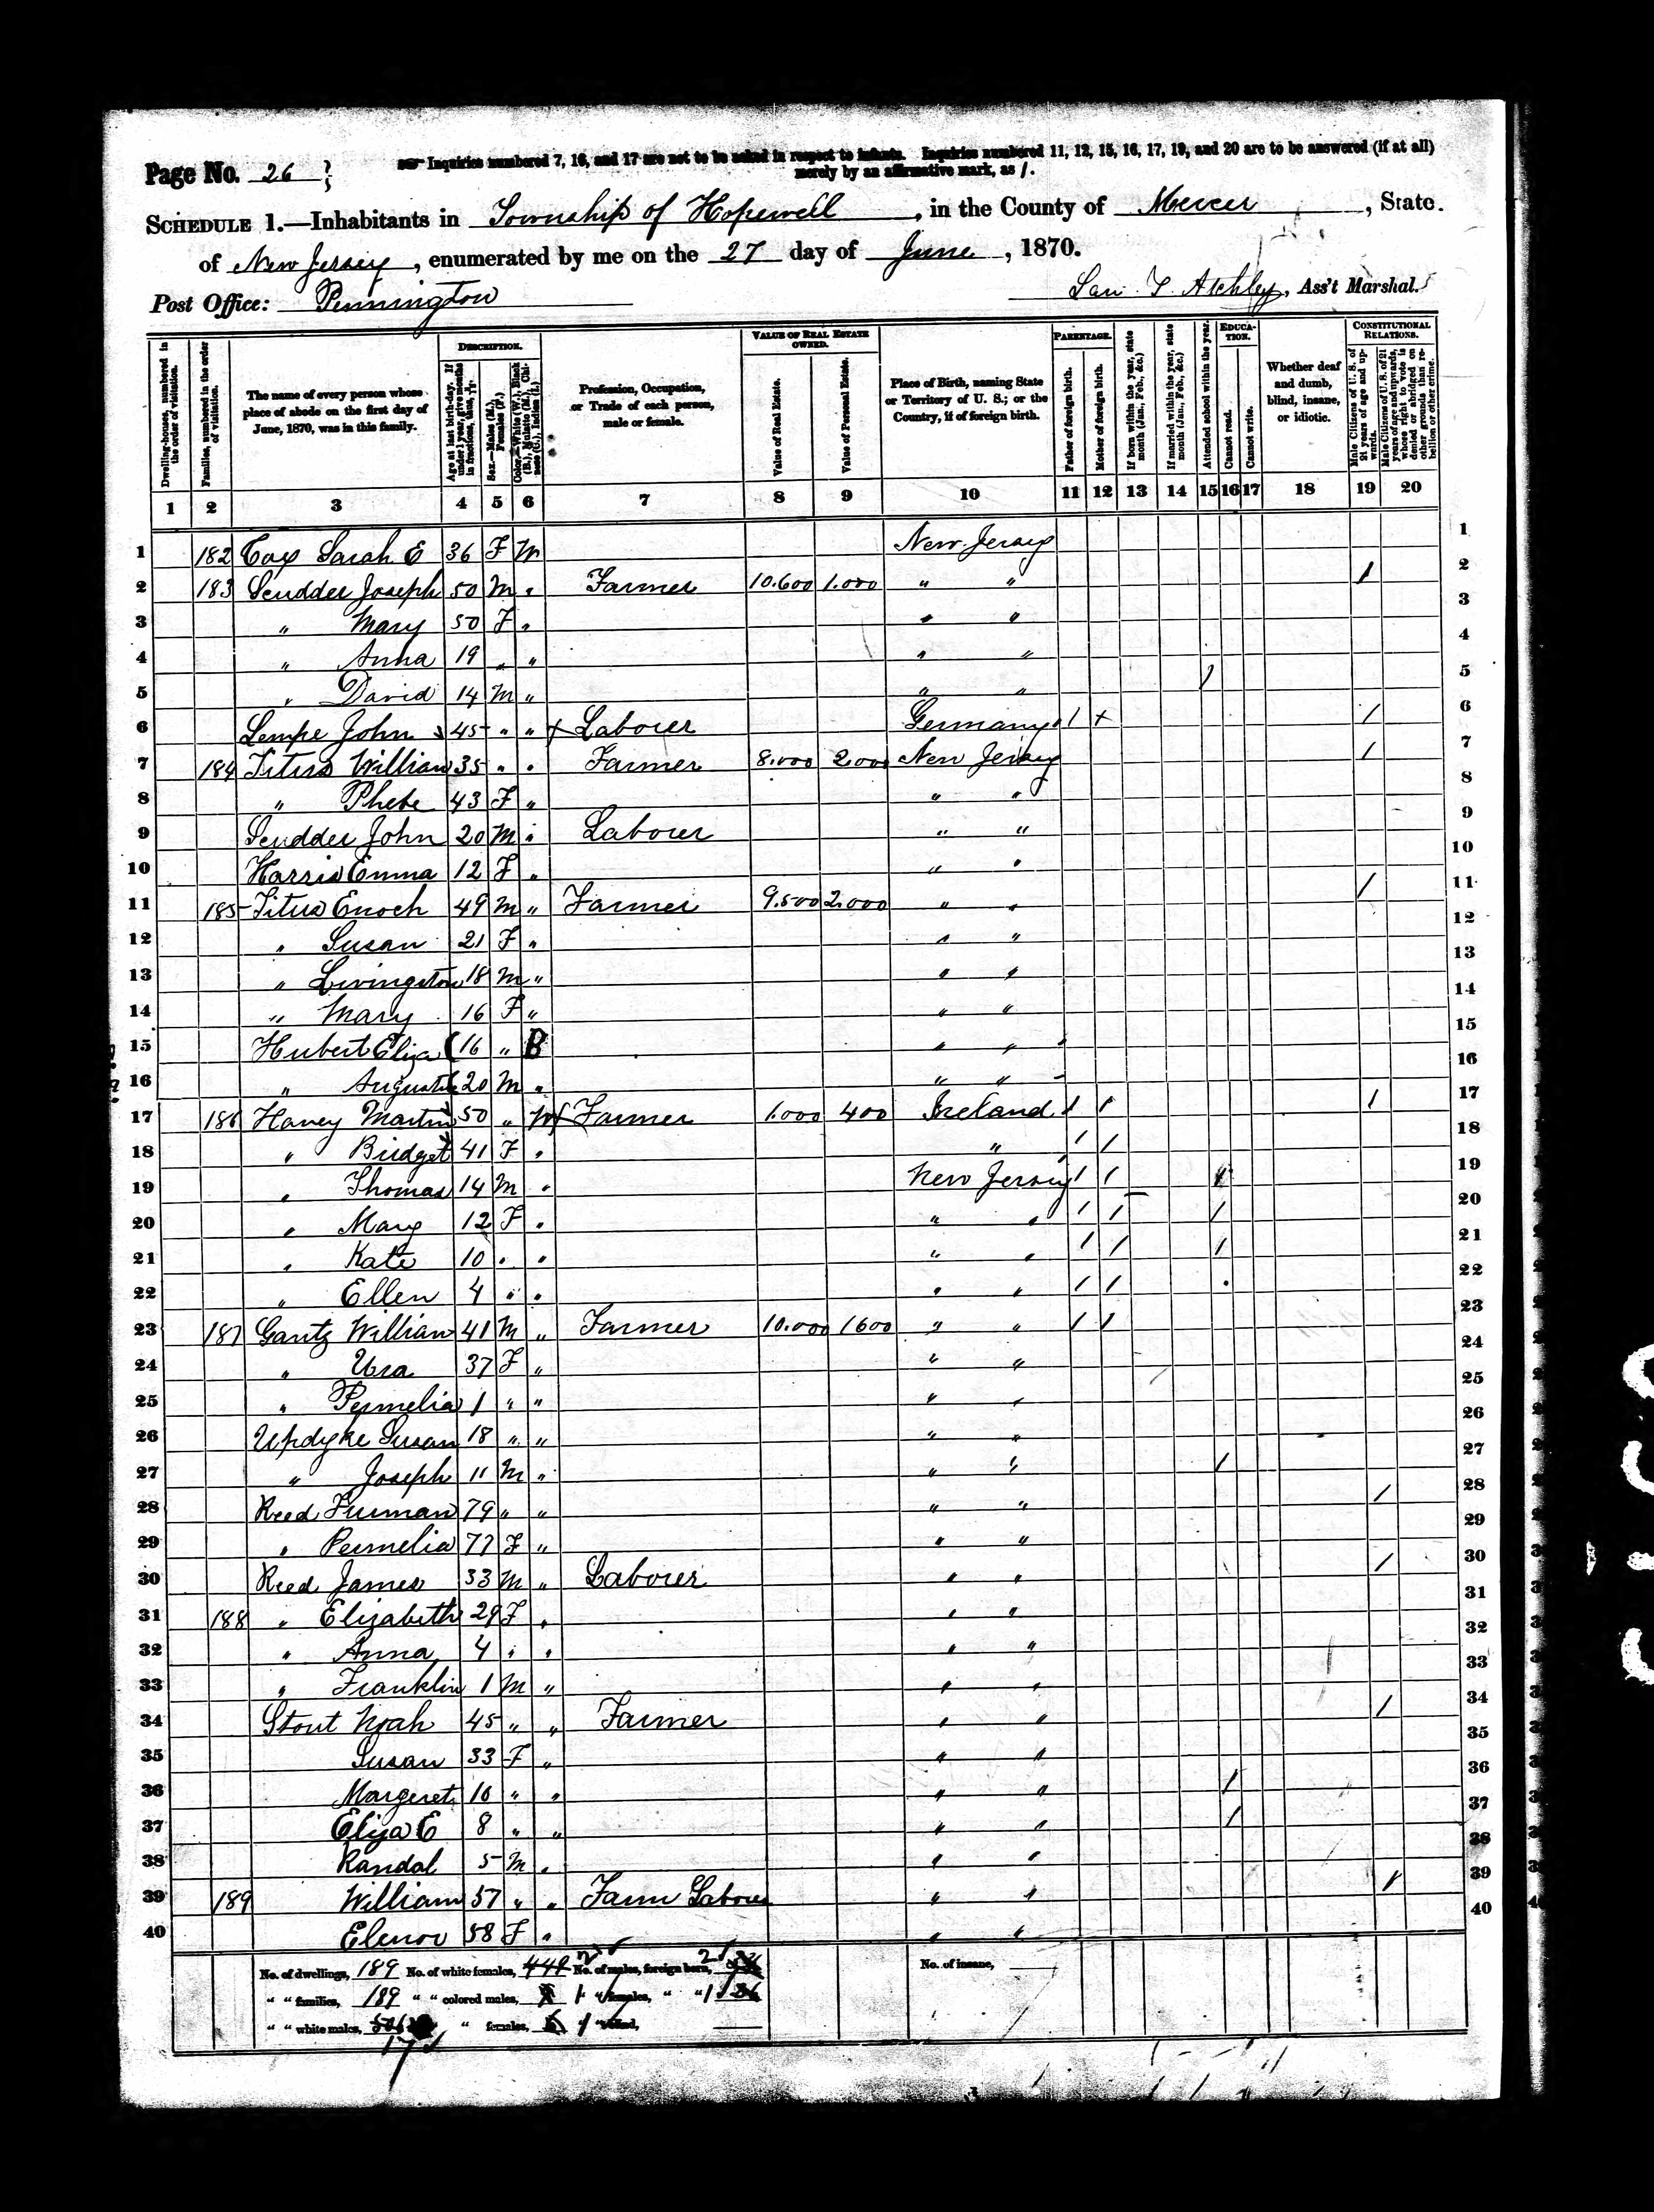 Page No. 26
Inquiries numbered 7, 16, and 17 are not to be asked in respect to infants. Inquiries numbered 11, 12, 15, 16, 17, 19, and 20 are to be answered (if at all)
merely by an affirmative mark, as /.
SCHEDULE 1.—Inhabitants in Township of Hopewell, in the County of Mercer, State
of New Jersey, enumerated by me on the 27 day of June, 1870.
Post Office: Pennington
Atchley, Ass't Marshal.
Dwelling-houses, numbered in the order of visitation.
Families, numbered in the order of visitation.
The name of every person whose place of abode on the first day of June, 1870, was in this family.
DESCRIPTION.
Age at last birth-day. If under 1 year, give months in fractions, thus,
Sex.—Males (M.), Females (F.)
Color.—White (W.), Black (B.), Mulatto (M.), Chinese (C.), Indian (I.)
Profession, Occupation, or Trade of each person, male or female.
VALUE OF REAL ESTATE OWNED.
Value of Real Estate.
Value of Personal Estate.
Place of Birth, naming State or Territory of U. S.; or the Country, if of foreign birth.
PARENTAGE.
Father of foreign birth.
Mother of foreign birth.
If born within the year, state month (Jan., Feb., &c.)
If married within the year, state month (Jan., Feb., &c.)
Attended school within the year.
EDUCATION.
Cannot read.
Cannot write.
Whether deaf and dumb, blind, insane, or idiotic.
CONSTITUTIONAL RELATIONS.
Male Citizens of U. S. of 21 years of age and upwards.
Male Citizens of U. S. of 21 years of age and upwards, whose right to vote is denied or abridged on other grounds than rebellion or other crime.
1 2 3 4 5 6 7 8 9 10 11 12 13 14 15 16 17 18 19 20
1 182 Cox Sarah E 36 F New Jersey 1
2 183 Scudder Joseph 50 M " Farmer 10.600 1.000 " " / 2
3 " Mary 50 F " " " 3
4 " Anna 19 " " " " 4
5 " David 14 M " " " / 5
6 Lempe John 45 " " Labourer Germany / + / 6
7 184 Titus William 35 " " Farmer 8.000 2.000 New Jersey / 7
8 " Phebe 43 F " " " 8
9 Scudder John 20 M " Labourer " " 9
10 Harris Emma 12 F " " " 10
11 185 Titus Enoch 49 M " Farmer 9.500 2.000 " " / 11
12 " Susan 21 F " " " 12
13 " Livingston 18 M " " " 13
14 " Mary 16 F " " " 14
15 Hubert Eliza 16 " B " " 15
16 " 20 M " " " 16
17 186 Haney Martin 50 " W Farmer 1.000 400 Ireland / / / 17
18 " Bridget 41 F " " / / 18
19 " Thomas 14 M " New Jersey / / / 19
20 " Mary 12 F " " " / / / 20
21 " Kate 10 " " " " / / / 21
22 " Ellen 4 " " " " / / 22
23 187 Gantz William 41 M " Farmer 10.000 1600 " " / / 23
24 " Ura 37 F " " " 24
25 " Permelia 1 " " " " 25
26 Updyke Susan 18 " " " " 26
27 " Joseph 11 M " " " / 27
28 Reed Furman 79 " " " " / 28
29 " Permelia 77 F " " " 29
30 Reed James 33 M " Labourer " " / 30
31 188 " Elizabeth 29 F " " " 31
32 " Anna 4 " " " " 32
33 " Franklin 1 M " " " 33
34 Stout Noah 45 " " Farmer " " / 34
35 Susan 33 F " " " 35
36 Margeret 10 " " " " / 36
37 Eliza E 8 " " " " / 37
38 Randal 5 M " " " 38
39 189 William 57 " " Farm Labourer " " / 39
40 Elenor 58 F " " " 40
No. of dwellings, 189 No. of white females, No. of males, foreign born, No. of insane,
" " families, 189 " " colored males, " " females, " "
" " white males, " " females, " " blind,